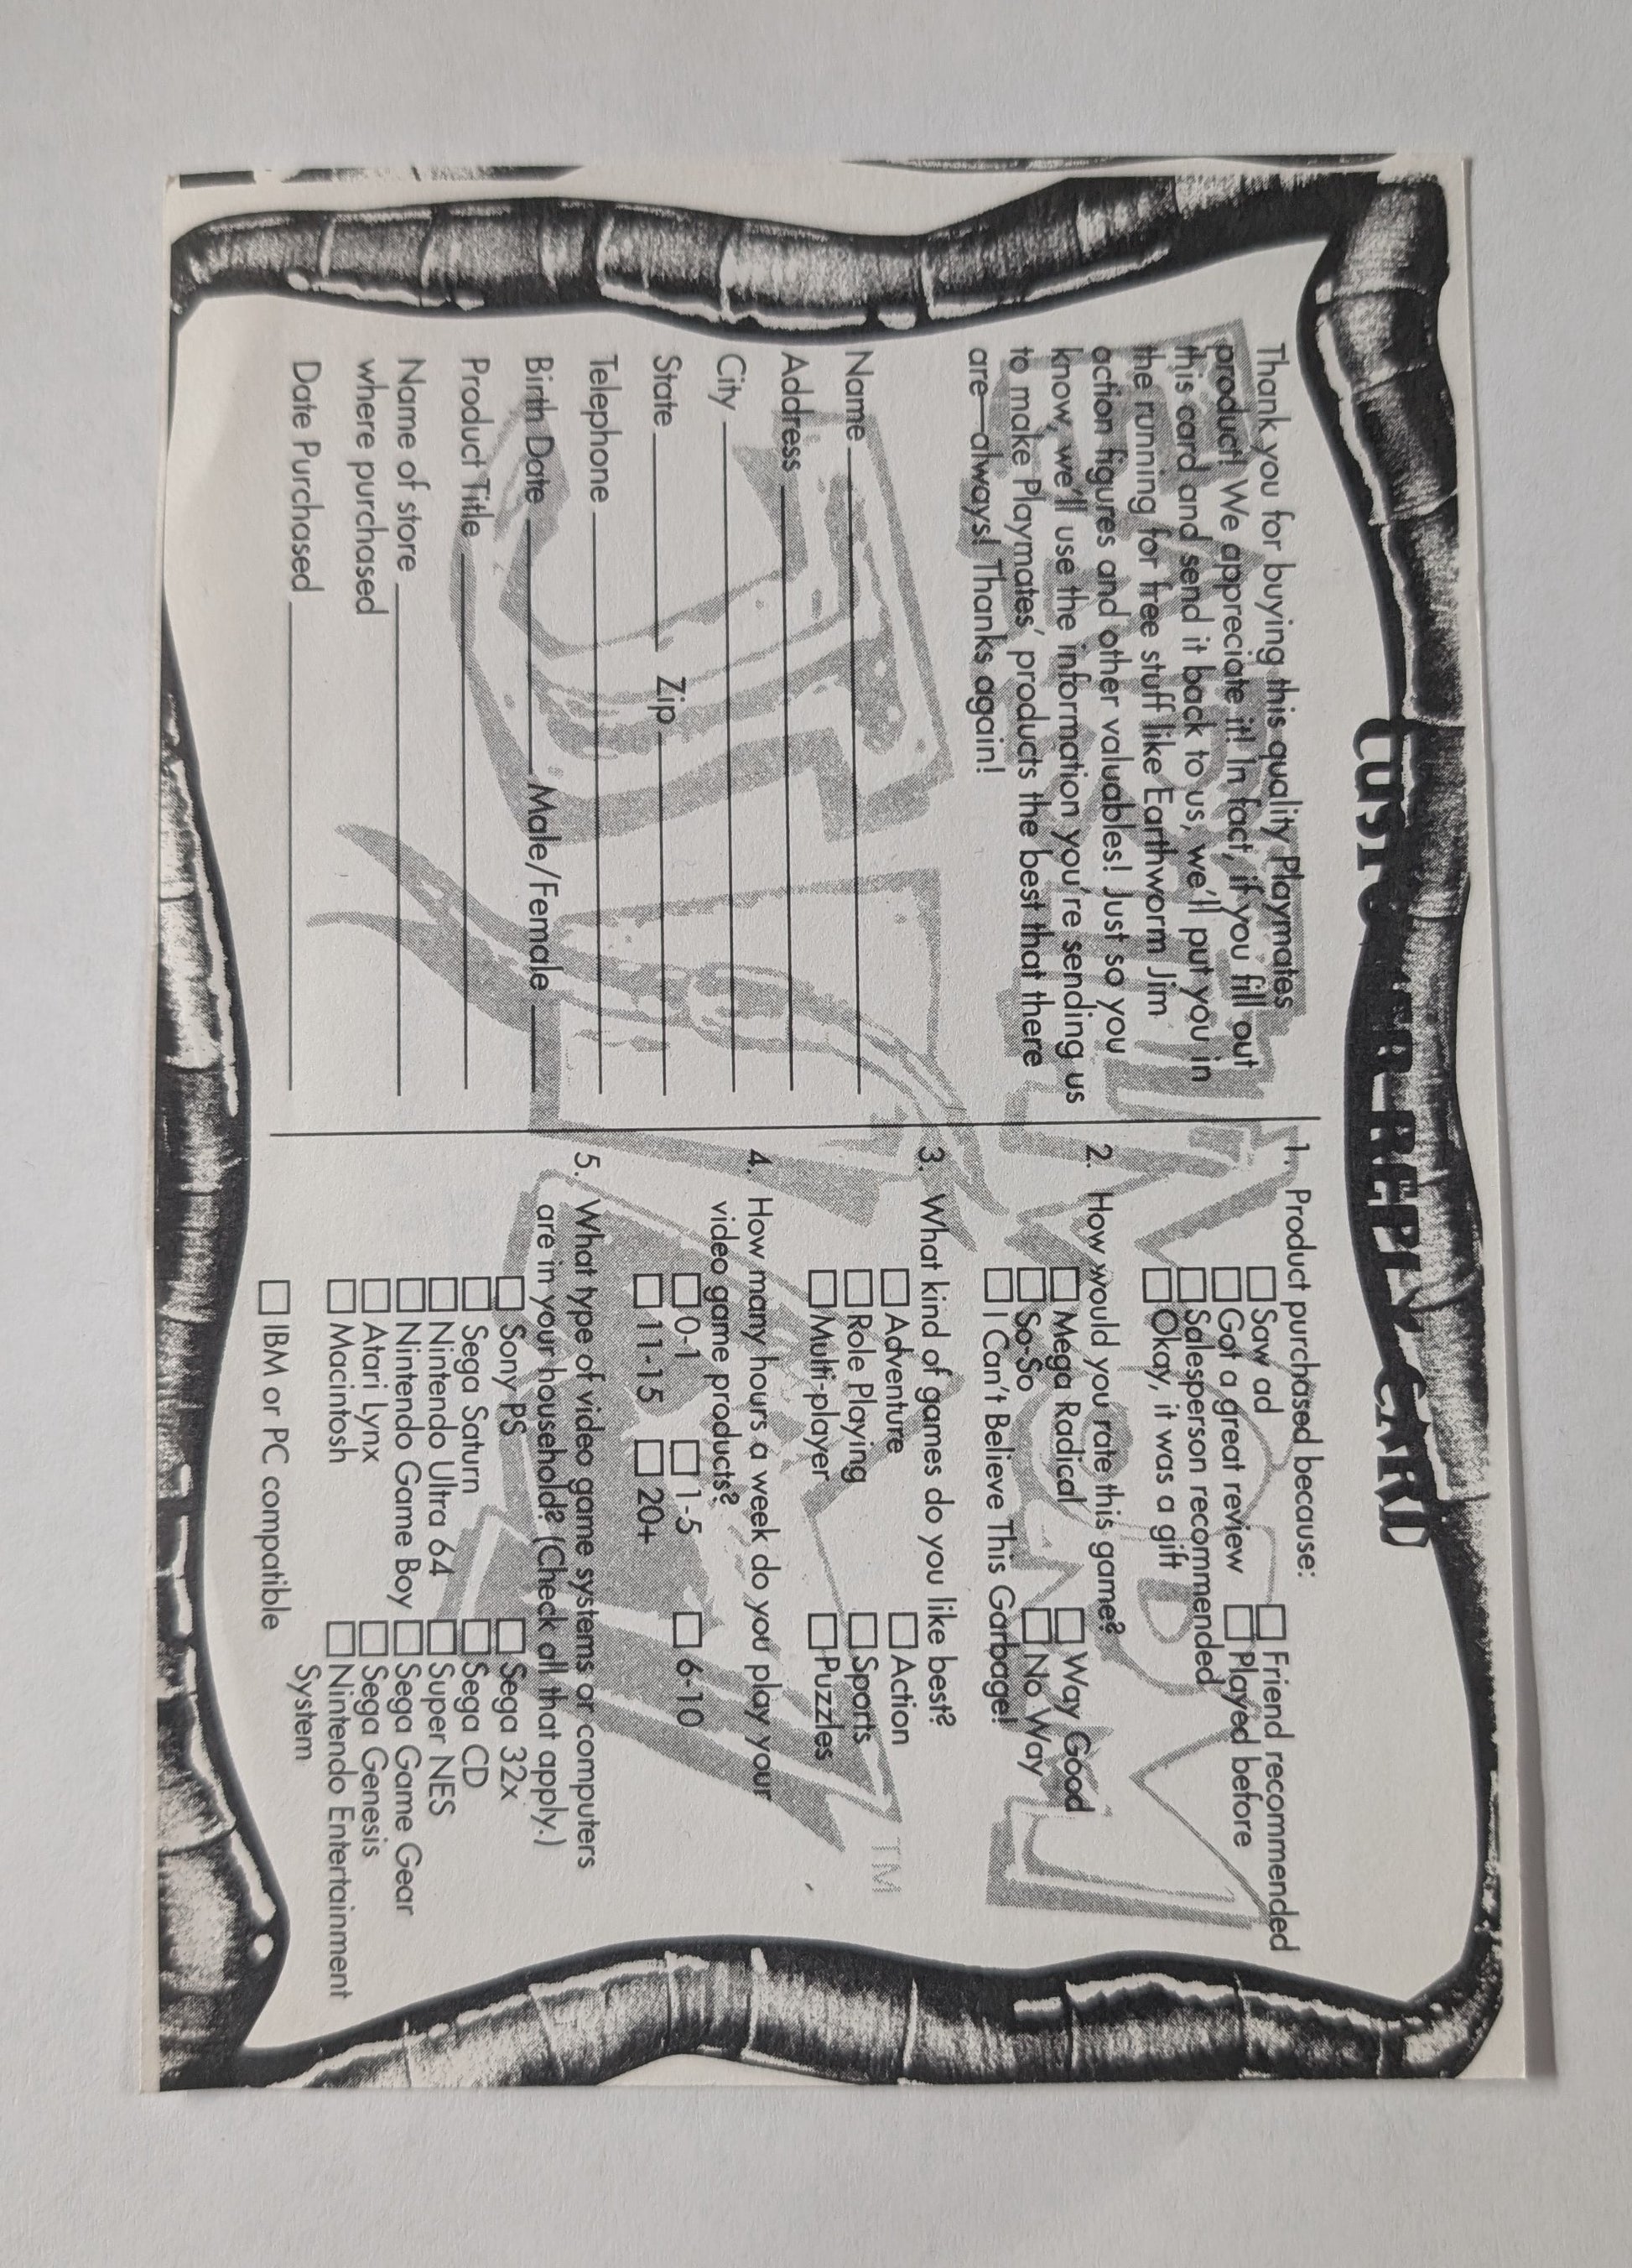 CUSTOMER REPLY CARD
Thank you for buying this quality Playmates
product! We appreciate it! In fact, if you fill out
this card and send it back to us, we'll put you in
the running for free stuff like Earthworm Jim
action figures and other valuables! Just so you
know, we'll use the information you're sending us
to make Playmates' products the best that there
are—always! Thanks again!
Name
Address
City
State Zip
Telephone
Birth Date Male/Female
Product Title
Name of store
where purchased
Date Purchased
1. Product purchased because:
Saw ad Friend recommended
Got a great review Played before
Salesperson recommended
Okay, it was a gift
2. How would you rate this game?
Mega Radical Way Good
So-So No Way
I Can't Believe This Garbage!
3. What kind of games do you like best?
Adventure Action
Role Playing Sports
Multi-player Puzzles
4. How many hours a week do you play your
video game products?
0-1 1-5 6-10
11-15 20+
5. What type of video game systems or computers
are in your household? (Check all that apply.)
Sony PS Sega 32x
Sega Saturn Sega CD
Nintendo Ultra 64 Super NES
Nintendo Game Boy Sega Game Gear
Atari Lynx Sega Genesis
Macintosh Nintendo Entertainment
System
IBM or PC compatible
EARTHWORM
JIM
2
TM